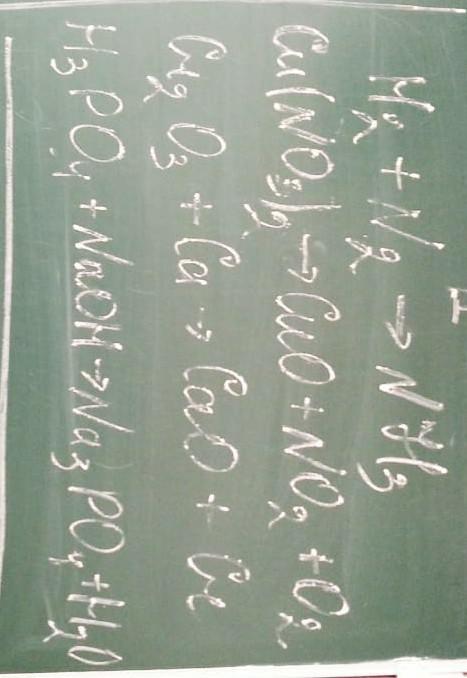 I
H₂ + N₂ → NH₃
Cu(NO₃)₂ → CuO + NO₂ + O₂
Cr₂O₃ + Ca → CaO + Cr
H₃PO₄ + NaOH → Na₃PO₄ + H₂O